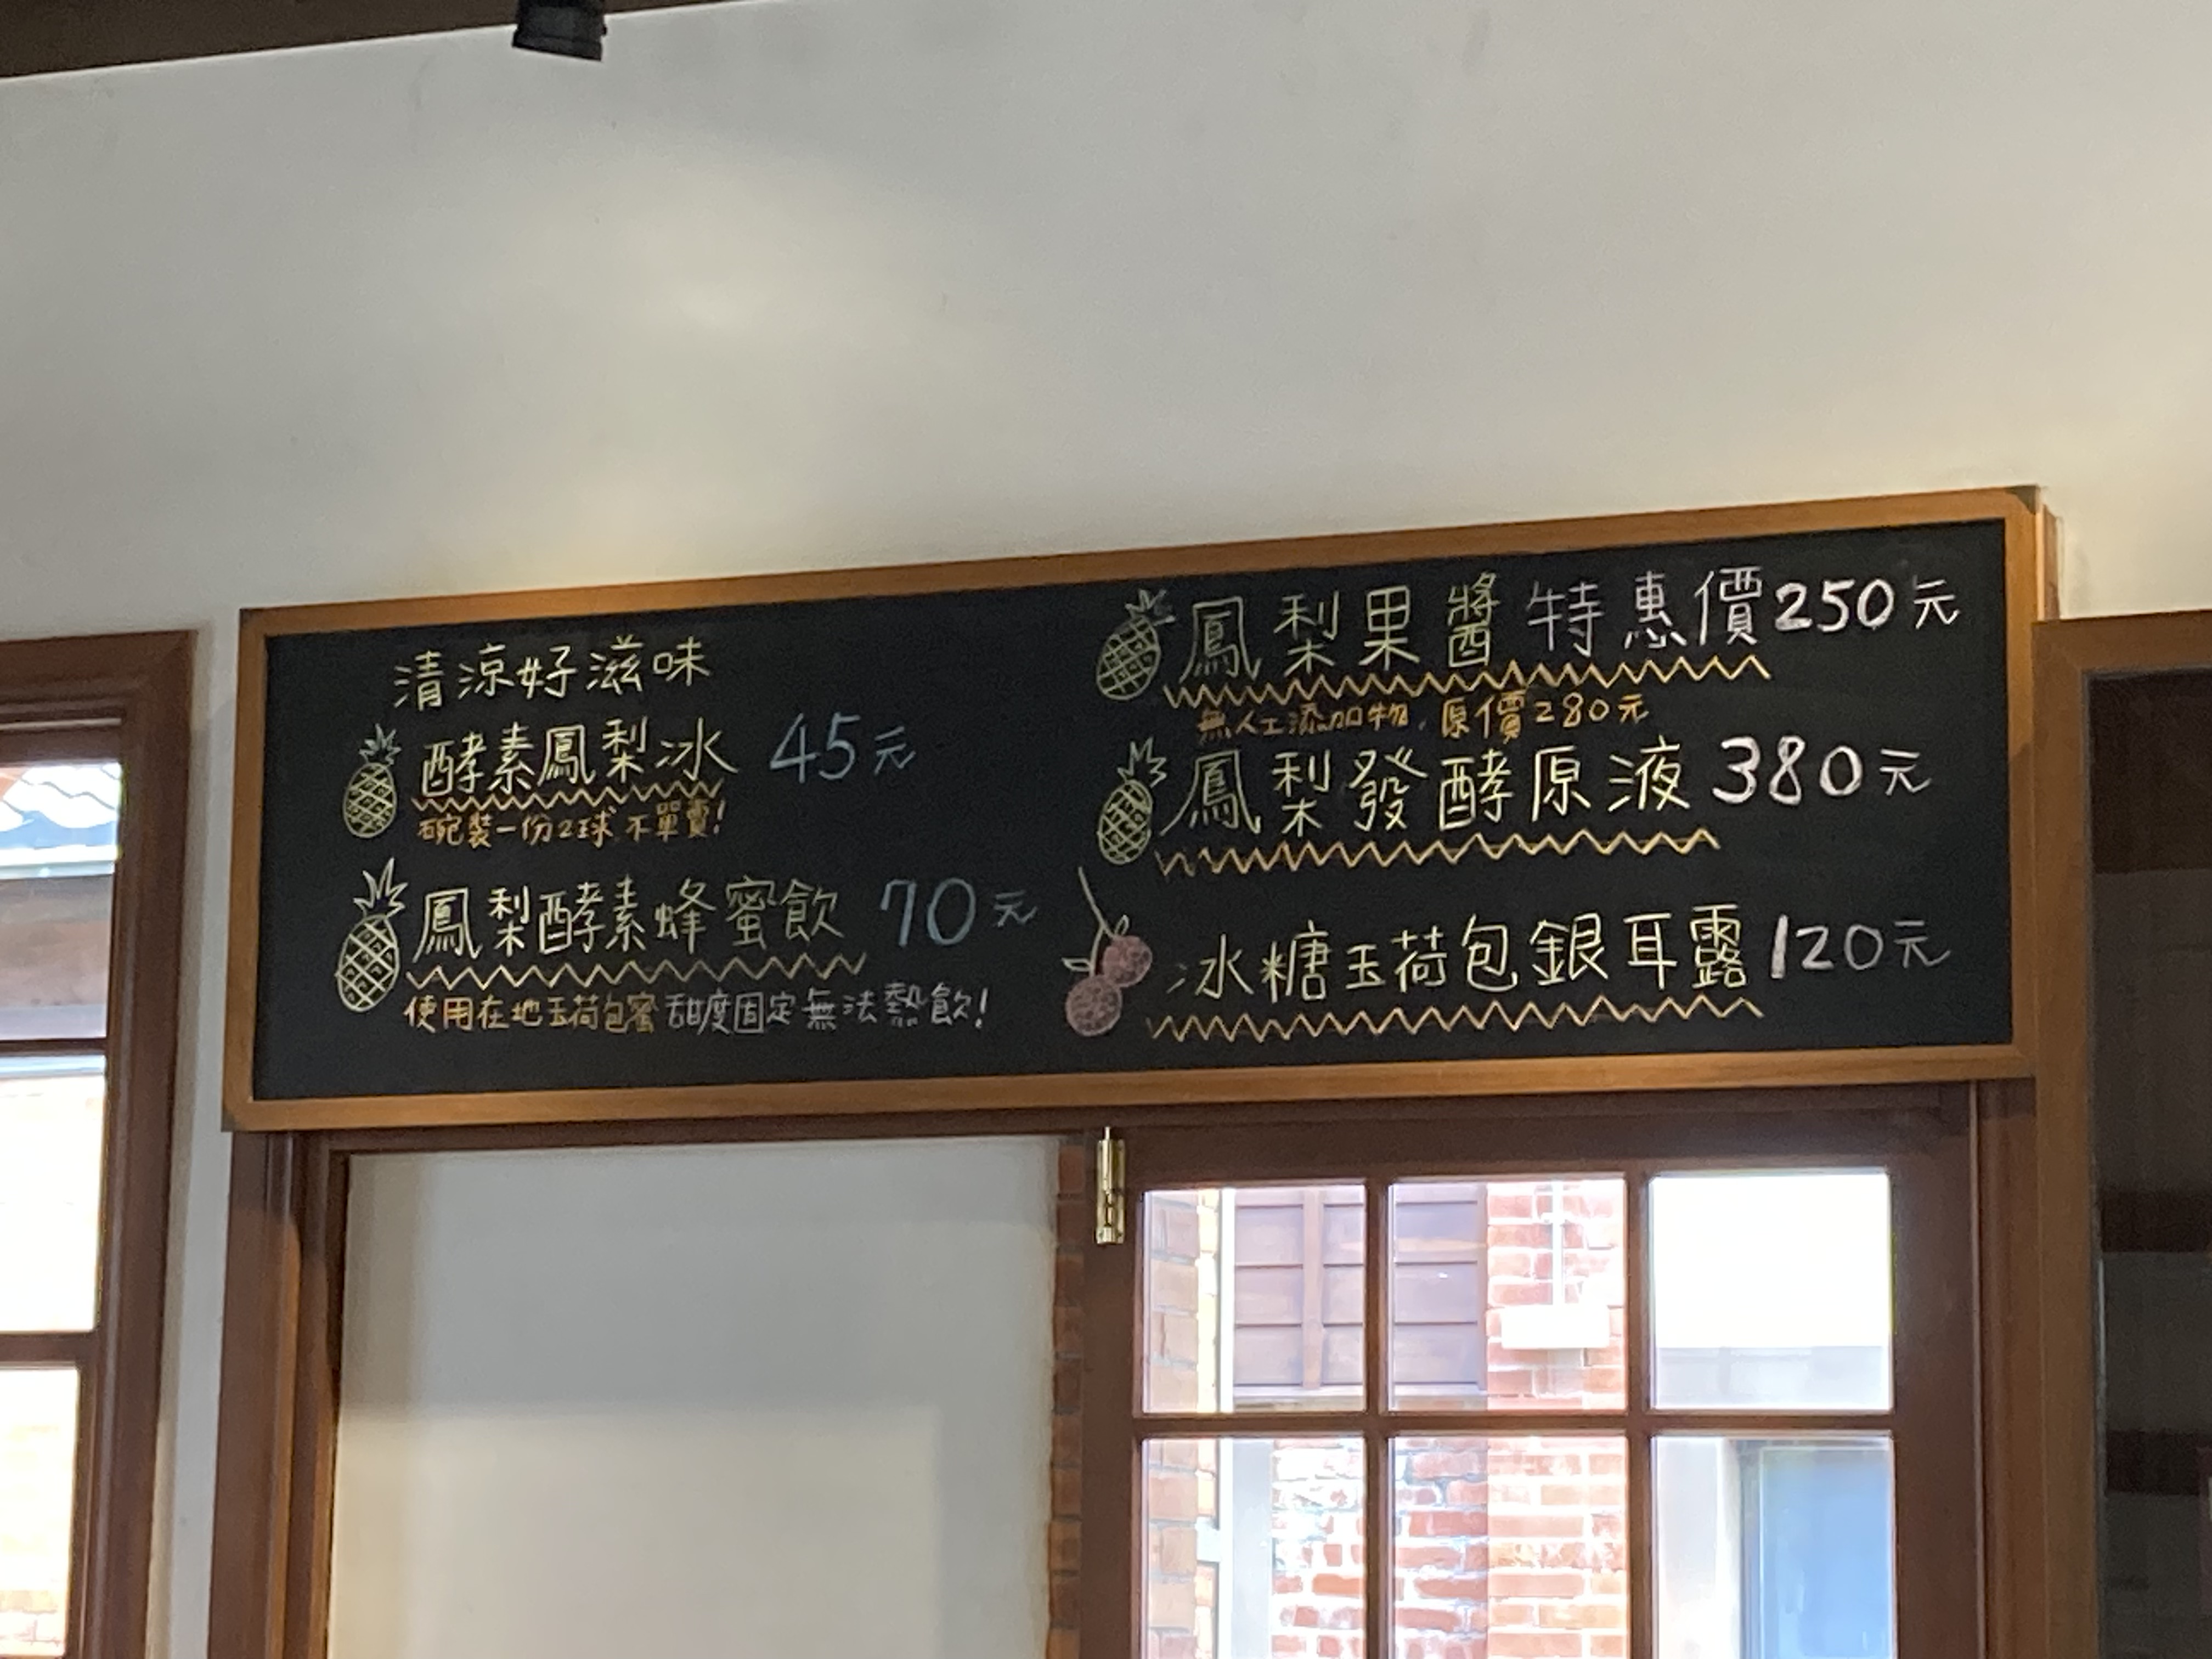 清涼好滋味
酵素鳳梨冰 45元
碗裝一份2球 不單賣!
鳳梨酵素蜂蜜飲 70元
使用在地玉荷包蜜 甜度固定無法熱飲!
鳳梨果醬特惠價250元
無人工添加物,原價280元
鳳梨發酵原液380元
冰糖玉荷包銀耳露120元